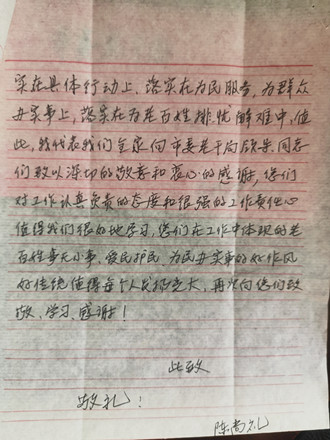 实在具体行动上，落实在为民服务，为群众
办实事上，落实在为老百姓排忧解难中，值
此，我代表我们全家向市委老干局领导同志
们致以深切的敬意和衷心的感谢，您们
对工作认真负责的态度和很强的工作责任心
值得我们很好地学习，您们在工作中体现的老
百姓事无小事，爱民护民，为民办实事的好作风
好传统值得每个人发扬光大，再次向您们致
敬，学习，感谢！
此致
敬礼！
陈尚礼